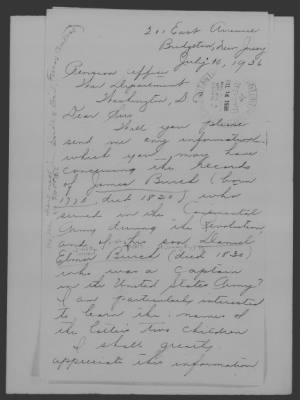 211 East Avenue
Bridgeton, New Jersey
July 16, 1936
Pension Office
War Department
Washington, D.C.
Dear Sirs
Will you please
send me any information
which you may have
concerning the records
of James Burch (born
died 1820) who
served in the Continental
Army during the Revolution
and of his son Daniel
Elmer Burch (died 1830)
who was a Captain
in the United States Army?
I am particularly interested
to learn the names of
the latter's two children
I shall greatly
appreciate this information